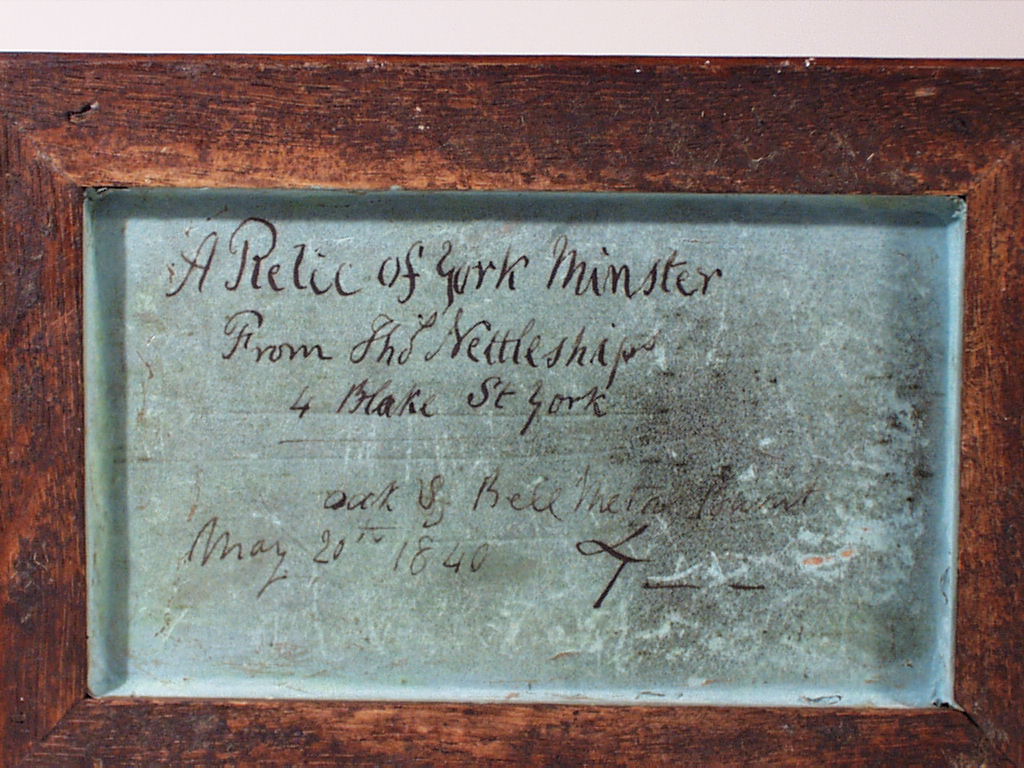 A Relic of York Minster
From Thos Nettleships
4 Blake St York
oak & Bell Metal Burnt
May 20th 1840